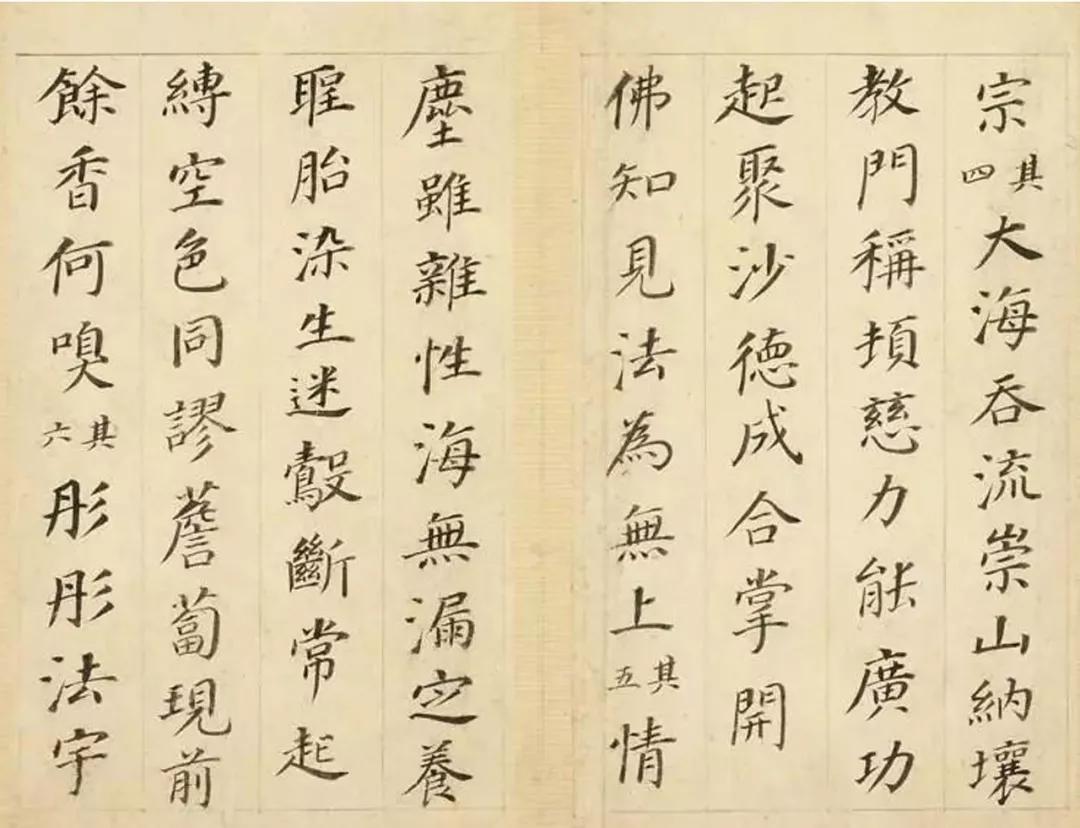 宗其四大海吞流崇山納壤
教門稱頓慈力能廣功
起聚沙德成合掌開
佛知見法為無上其五情
塵雖雜性海無漏㝎養
聖胎染生迷鷇斷常起
縛空色同謬薝蔔現前
餘香何嗅其六彤彤法宇